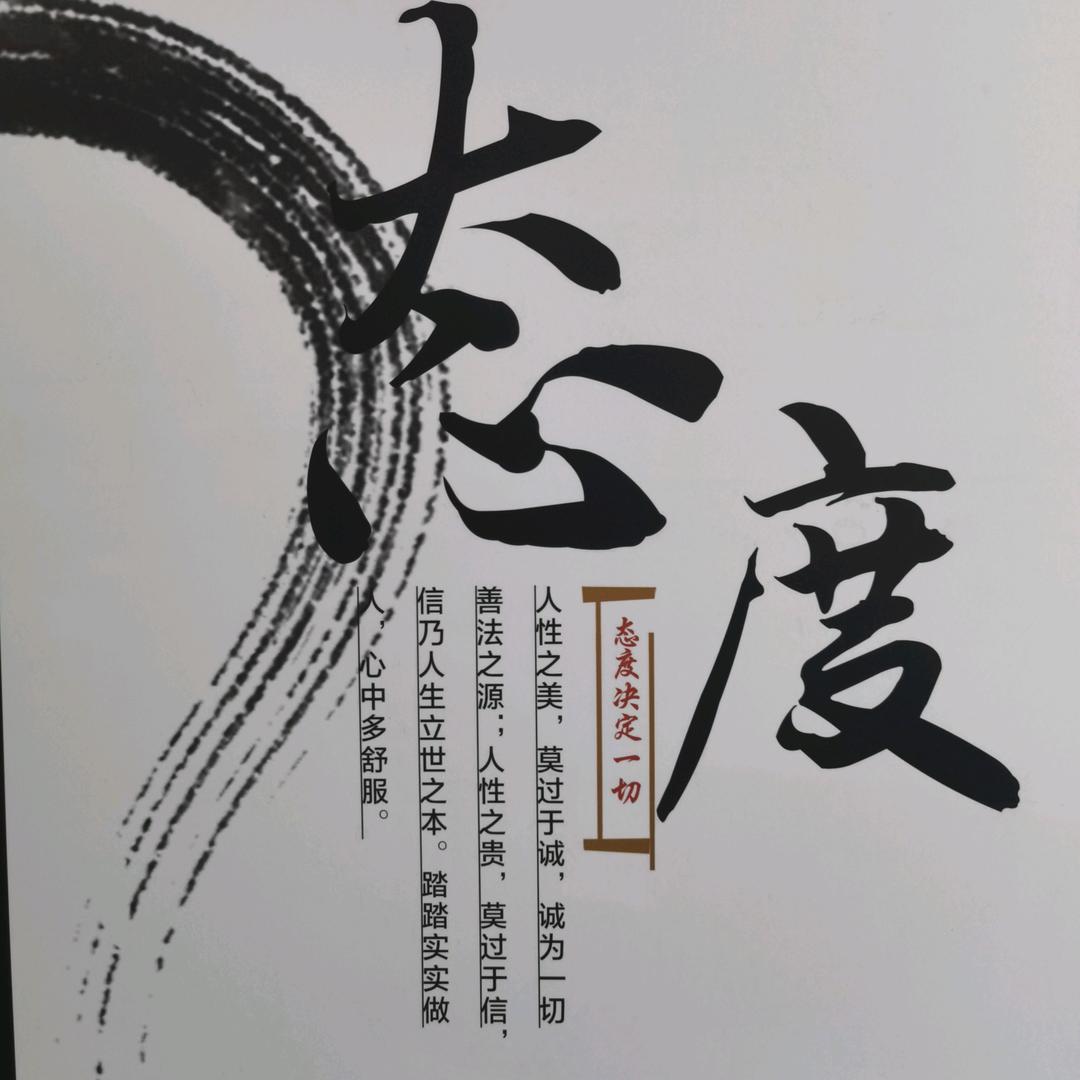 态度
态度决定一切
人性之美，莫过于诚，诚为一切
善法之源；人性之贵，莫过于信，
信乃人生立世之本。踏踏实实做
人，心中多舒服。